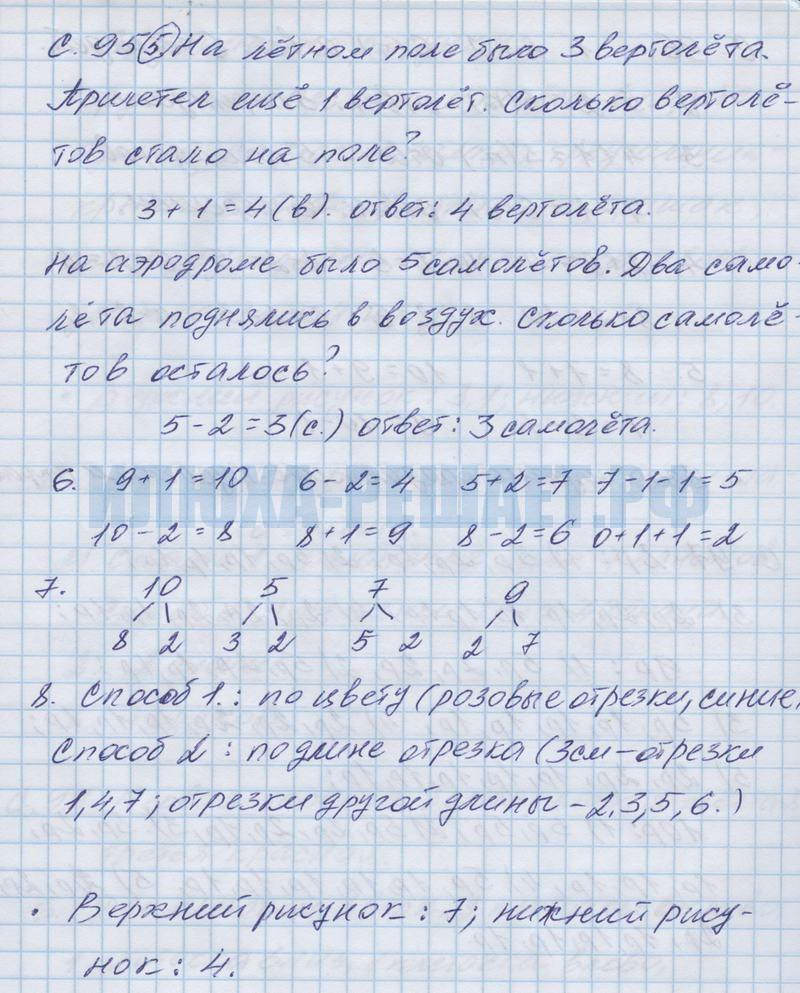 С. 95 5 На лётном поле было 3 вертолёта.
Прилетел ещё 1 вертолёт. Сколько вертолё-
тов стало на поле?
3 + 1 = 4 (в). ответ: 4 вертолёта.
На аэродроме было 5 самолётов. Два само-
лёта поднялись в воздух. Сколько самолё-
тов осталось?
5 - 2 = 3 (с.) ответ: 3 самолёта.
6. 9 + 1 = 10 6 - 2 = 4 5 + 2 = 7 7 - 1 - 1 = 5
ИЛЮХА-РЕШАЕТ.РФ
10 - 2 = 8 8 + 1 = 9 8 - 2 = 6 0 + 1 + 1 = 2
7. 10 5 7 9
8 2 3 2 5 2 2 7
8. Способ 1.: по цвету (розовые отрезки, синие)
Способ 2 : по длине отрезка (3см – отрезки
1, 4, 7; отрезки другой длины – 2, 3, 5, 6.)
. Верхний рисунок : 7; нижний рису-
нок : 4.